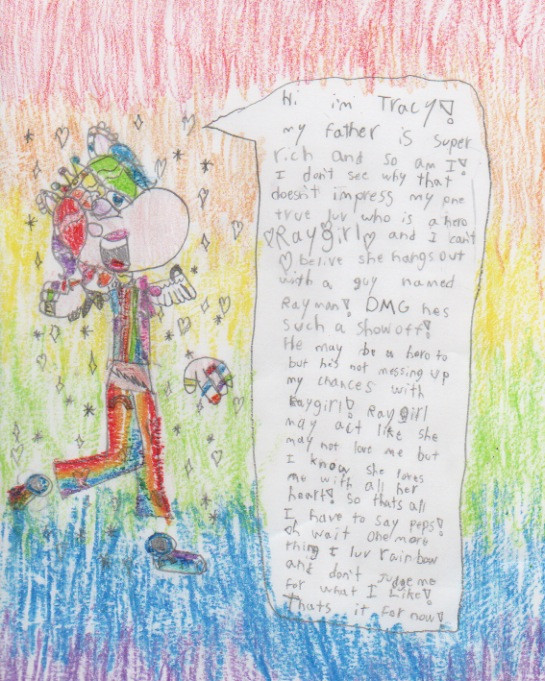 Hi im Tracy!
my Father is super
rich and so am I!
I don't see why that
doesn't impress my one
true luv who is a hero
Raygirl and I can't
belive she hangs out
with a guy named
Rayman! OMG hes
such a show off!
He may be a hero to
but he's not messing up
my chances with
Raygirl! Raygirl
may act like she
may not love me but
I know she loves
me with all her
heart! so thats all
I have to say peps!
Oh wait one more
thing I luv rainbow
and don't judge me
For what I Like!
Thats it for now!